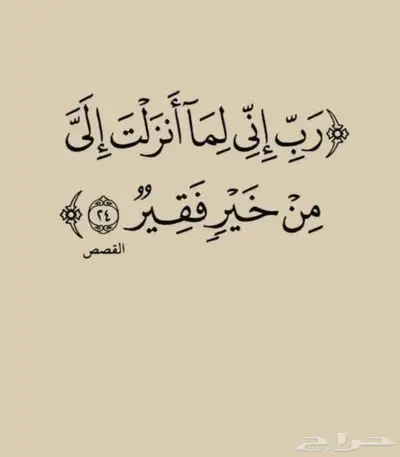 ﴿رَبِّ إِنِّي لِمَآ أَنزَلْتَ إِلَيَّ
مِنْ خَيْرٍ فَقِيرٌ ٢٤﴾
القصص
حراج